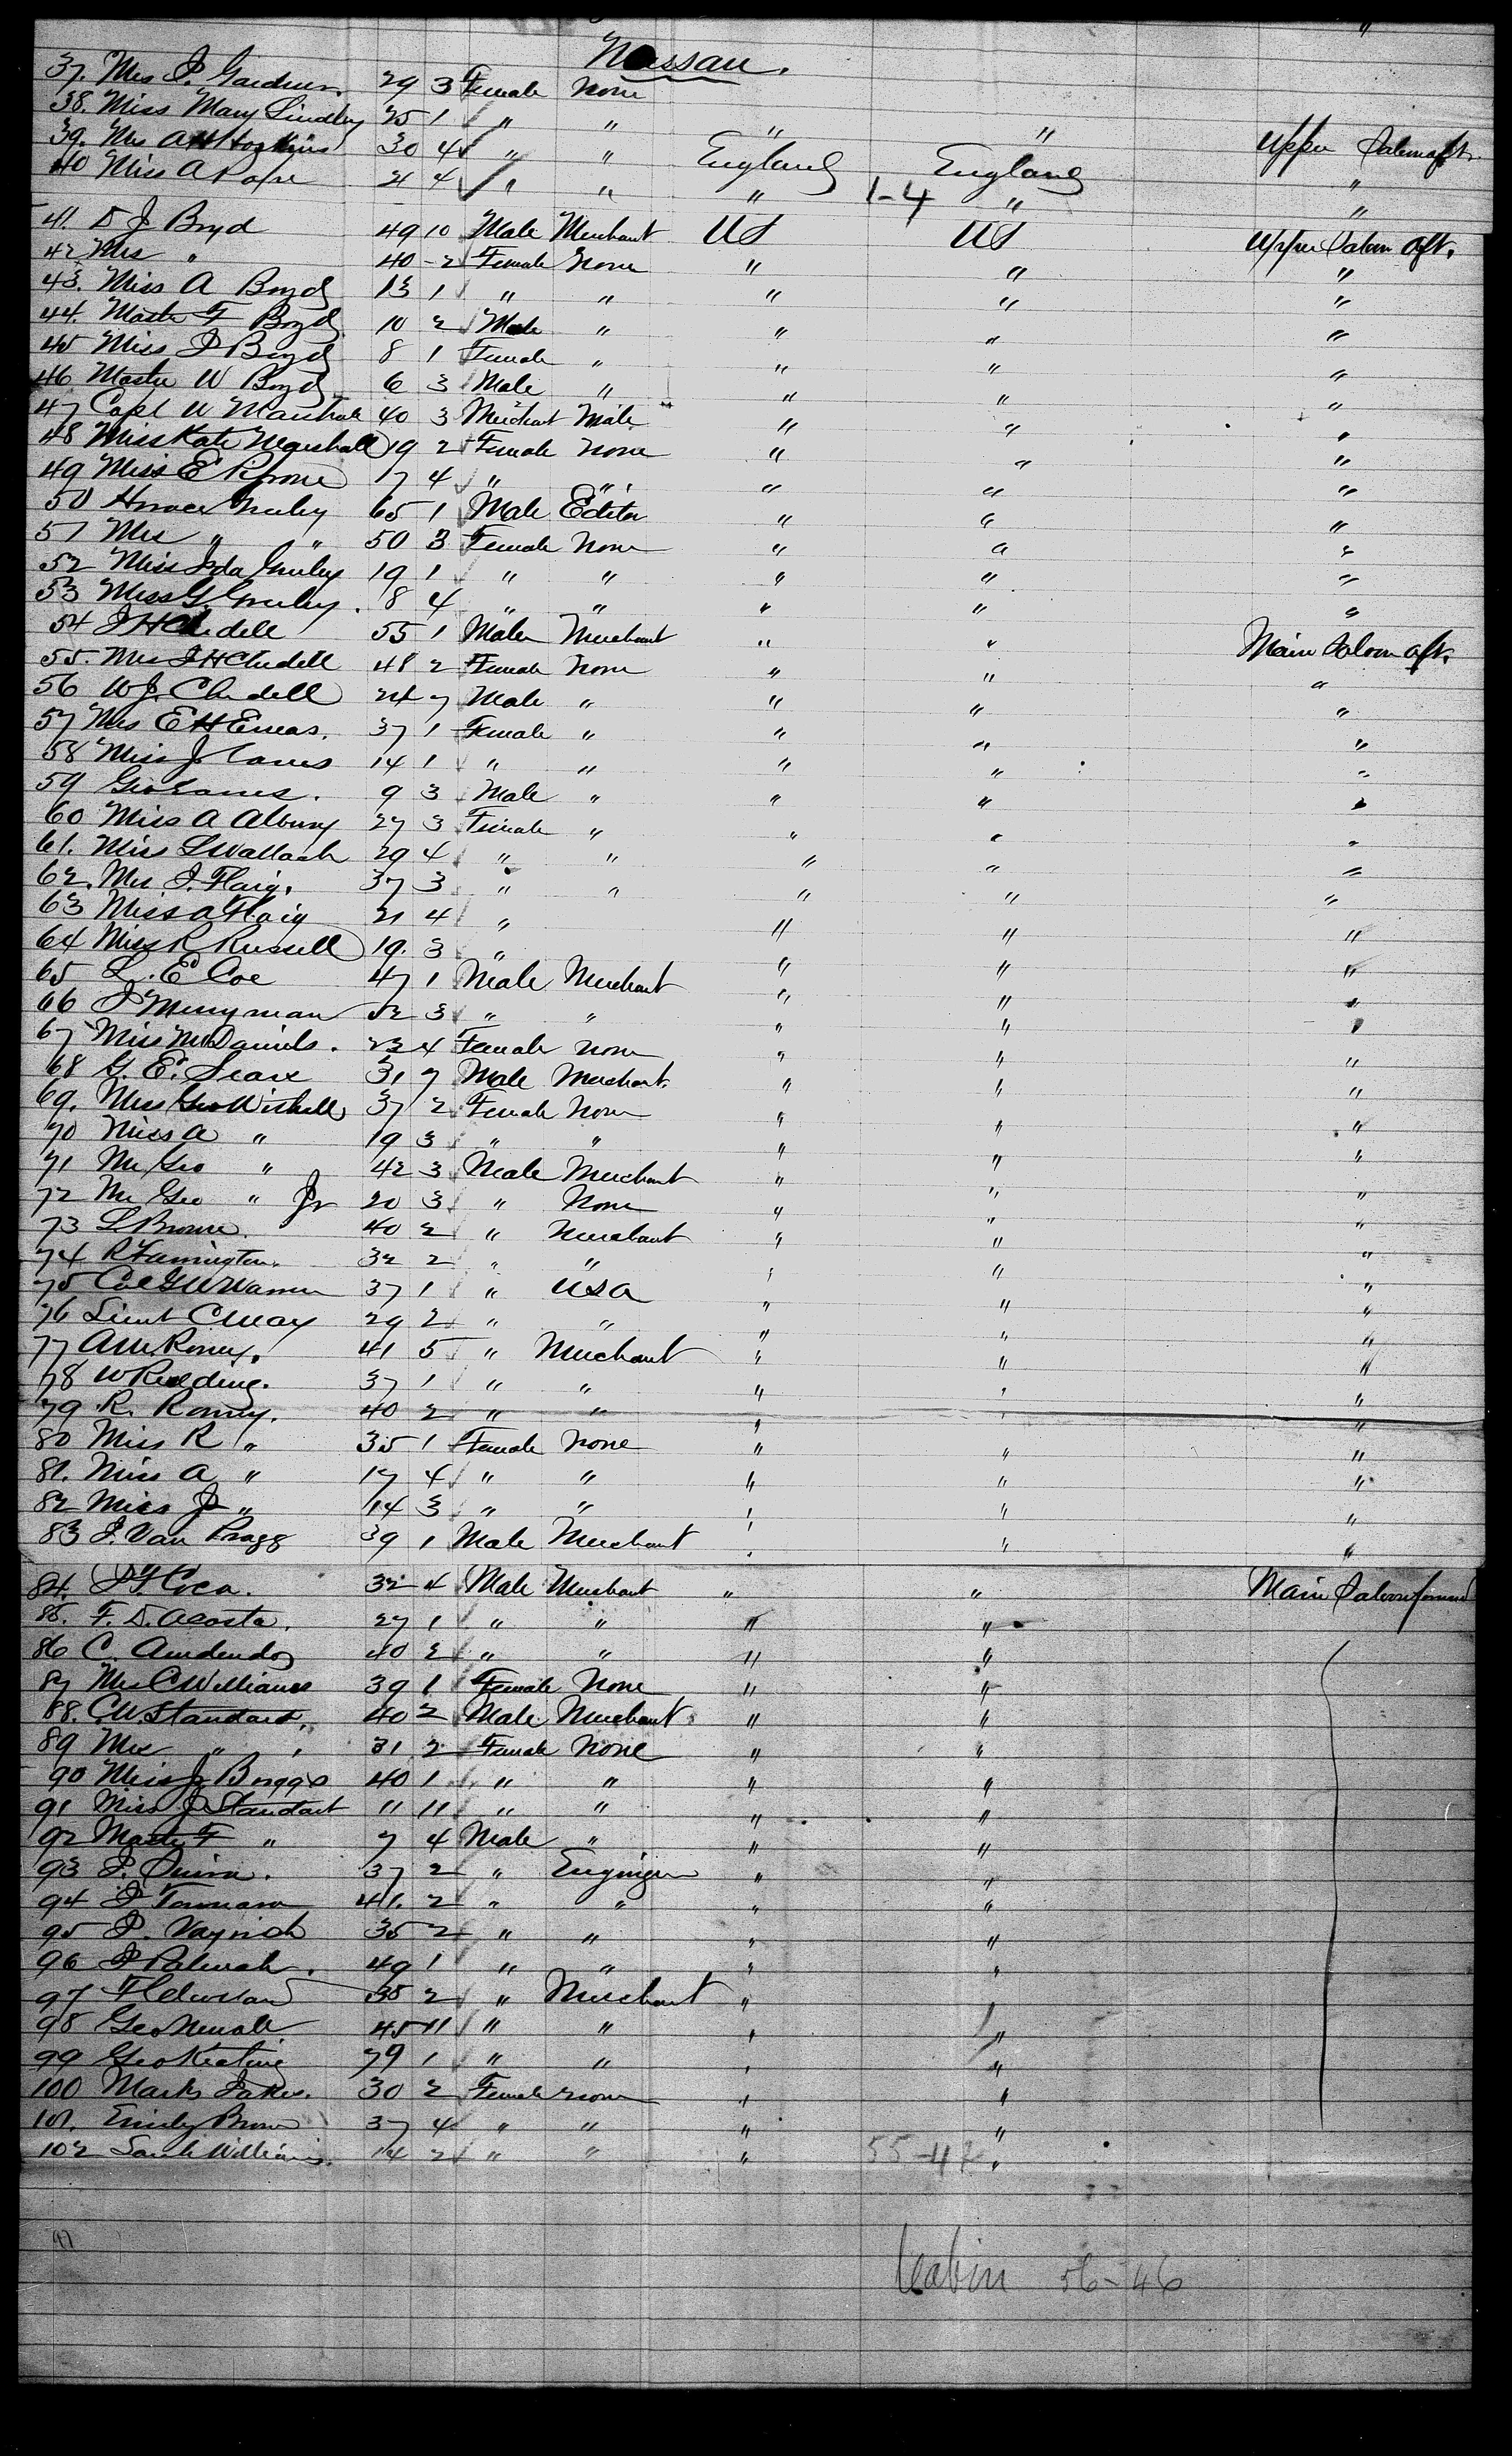 "
Nassau.
37. Mrs P. Gardner. 29 3 Female None
38. Miss Mary Lindley 25 1 " " " "
39. Mrs A H Hopkins 30 4 " " England England Upper Saloon aft.
40 Miss A Pope 21 4 " " " 1-4 " "
"
41. D J Boyd 49 10 Male Merchant US US Upper Saloon Aft.
42 Mrs " 40 2 Female None " " "
43. Miss A Boyd 13 1 " " " " "
44. Master F Boyd 10 2 Male " " " "
45 Miss J Boyd 8 1 Female " " " "
46 Master W Boyd 6 3 Male " " " "
47 Capt W Marshall 40 3 Merchant Male " " "
48 Miss Kate Marshall 19 2 Female None " " "
49 Miss E 17 4 " " " " "
50 Horace Greeley 65 1 Male Editor " " "
51 Mrs " " 50 3 Female None " " "
52 Miss Ida Greeley 19 1 " " " " "
53 Miss G. Greeley. 8 4 " " " " "
54 J H Chedell 55 1 Male Merchant " " Main Saloon aft.
55. Mrs J H Chedell 48 2 Female None " " "
56 W J. Chedell 24 7 Male " " " "
57 Mrs E H Eneas. 37 1 Female " " " "
58 Miss J 14 1 " " " " "
59 Geo 9 3 Male " " " "
60 Miss A Albury 27 3 Female " " " "
61. Miss L Wallach 29 4 " " " " "
62. Mrs J. Haig. 37 3 " " " " "
63 Miss A Haig 21 4 " " " "
64 Miss R Russell 19. 3 " " " "
65 L. E Coe 47 1 Male Merchant " " "
66 J Merryman 52 3 " " " " "
67 Miss M Daniels. 23 4 Female None " " "
68 G. E. 31 7 Male Merchant. " " "
69. Mrs Geo 37 2 Female None " " "
70 Miss A " 19 3 " " " " "
71 Mr Geo " 42 3 Male Merchant " " "
72 Mr Geo " Jr 20 3 " None " " "
73 L Brown. 40 2 " Merchant " " "
74 R Farrington. 32 2 " " " " "
75 Col G W Warren 37 1 " USA " " "
76 Lieut C May 29 2 " " " " "
77 A M. Romey. 41 5 " Merchant " " "
78 W Redding. 37 1 " " " " "
79 R. Romey. 40 2 " " " " "
80 Miss R " 35 1 Female None " " "
81. Miss A " 17 4 " " " " "
82 Miss J " 14 3 " " " " "
83 J. Van Pragg 39 1 Male Merchant " " "
84. J F Coca. 32 4 Male Merchant " " Main Saloon forward
85. F. D. Acosta. 27 1 " " " "
86 C. 40 2 " " " "
87 Mrs C Williams 39 1 Female None " "
88. C. W. Standart, 40 2 Male Merchant " "
89 Mrs " 31 2 Female None " "
90 Miss J Boggs 40 1 " " " "
91 Miss J Standart 11 11 " " " "
92 Master F " 7 4 Male " " "
93 J. Quinn. 37 2 " Engineer " "
94 J 41. 2 " " " "
95 J. 35 2 " " " "
96 J 49 1 " " " "
97 F 38 2 " Merchant "
98 Geo Newall. 45 11 " " " "
99 Geo Keating 79 1 " " " "
100 30 2 Female None " "
101. Emily Brown 37 4 " " " "
102 Sarah Williams. 14 2 " " " 55-42 "
97
Cabin 56-46